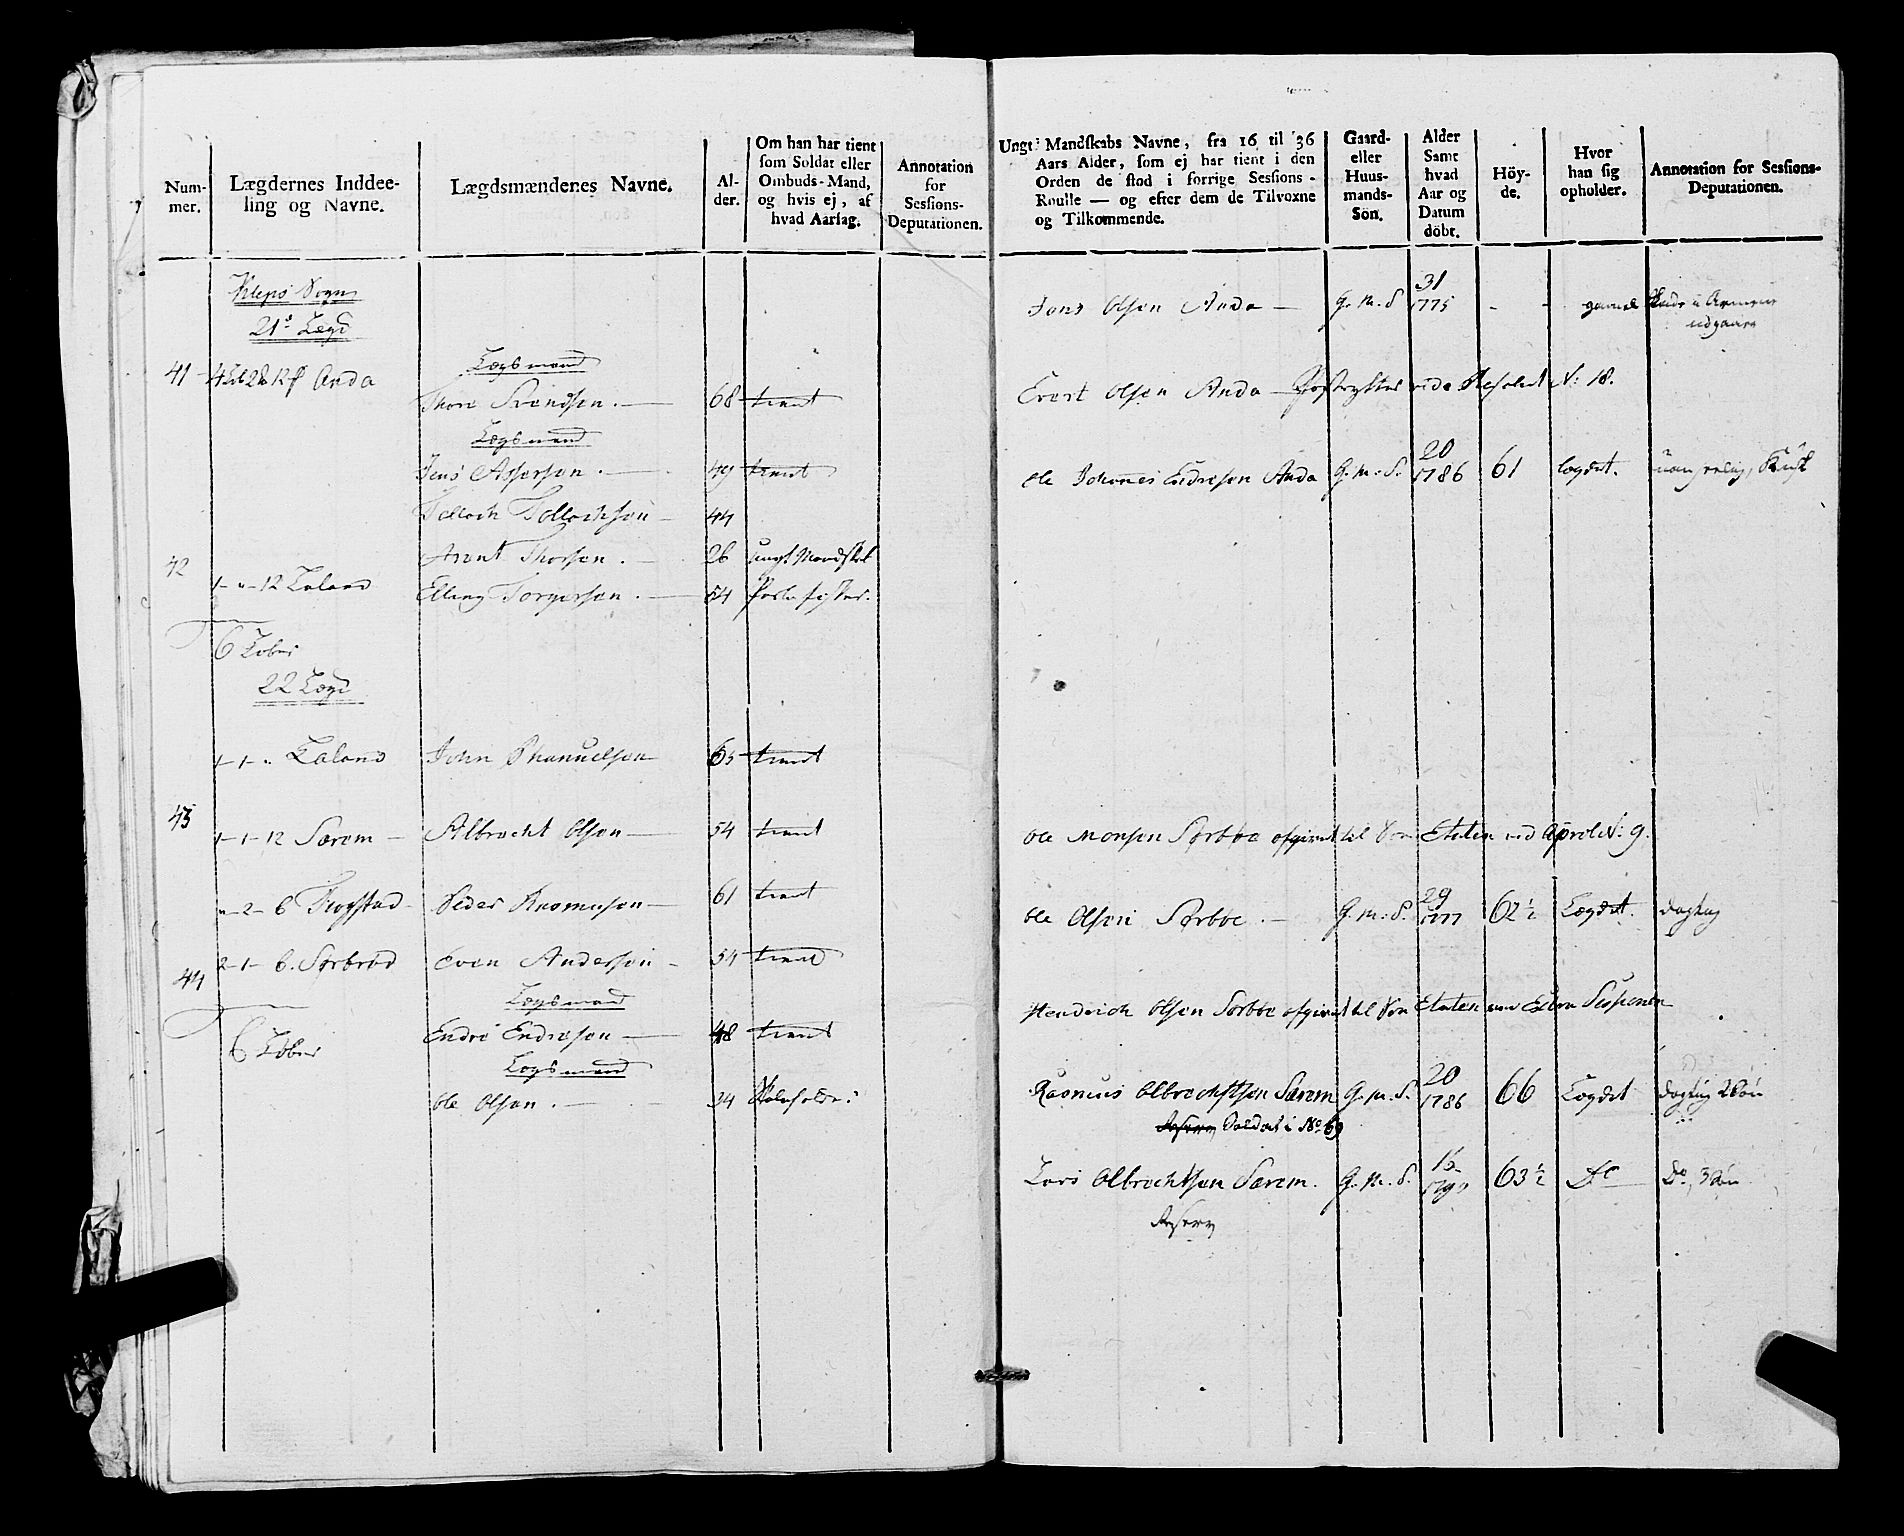 Num-
mer.
Lægdernes Inddee-
ling og Navne.
Lægdsmændenes Navne.
Al-
der.
Om han har tient
som Soldat eller
Ombuds-Mand,
og hvis ej, af
hvad Aarsag.
Annotation
for
Sessions-
Deputationen.
Kleps Sogn
21de Lægd
41 Anda
Lægsmand
Thore Svendsen. 68 tient
Lægsmand
Jens Assersen. 49 tient
Tollach Tollachsen 44
42
Arent Thorsen. 26 ungt Mandskab
1 - " - 12 Laland Elling Torgersen. 54
6 Løber
22 Lægd
1 - 1 - " Laland John Phanuelsen 65 tient
43
1 - 1 - 12 Særem Albrecht Olsen 54 tient
" - 2 - 6 Peder Rasmusen 61 tient
44
2 - 1 - 6. Sørbrød Even Andersen 54 tient
Lægsmand
6 Løber Endre Endresen 48 tient
Lægsmand
Ole Olsen. 34
Ungt Mandskabs Navne, fra 16 til 36
Aars Alder, som ej har tient i den
Orden de stod i forrige Sessions-
Roulle — og efter dem de Tilvoxne
og Tilkommende.
Gaard-
eller
Huus-
mands-
Sön.
Alder
Samt
hvad
Aar og
Datum
döbt.
Höy-
de.
Hvor
han sig
opholder.
Annotation for Sessions-
Deputationen.
31
Jens Olsen Anda — G. M. S. 1775 - - gammel Skade i Armene
udgaaer
Evert Olsen Anda N: 18.
20
Ole Johannes Endresen Anda G. M: S: 1786 61 Lægdet.
Ole Monsen Sørboe afgivet til Søe Etaten ved April N: 9.
29
Ole Olsen Sørboe. — G. M: S. 1777 62 ½ Lægdet. dogtig
Henderich Olsen Sørboe afgivet til Søe Etaten ved Extra Sessionen
20
Rasmus Olbrechtsen Særem G. M. S. 1786 66 Lægdet dogtig
Reserv Soldat i No 69
Lars Olbrechtsen Særem. G. M. S. 63 ½ Do Do,
Reserv